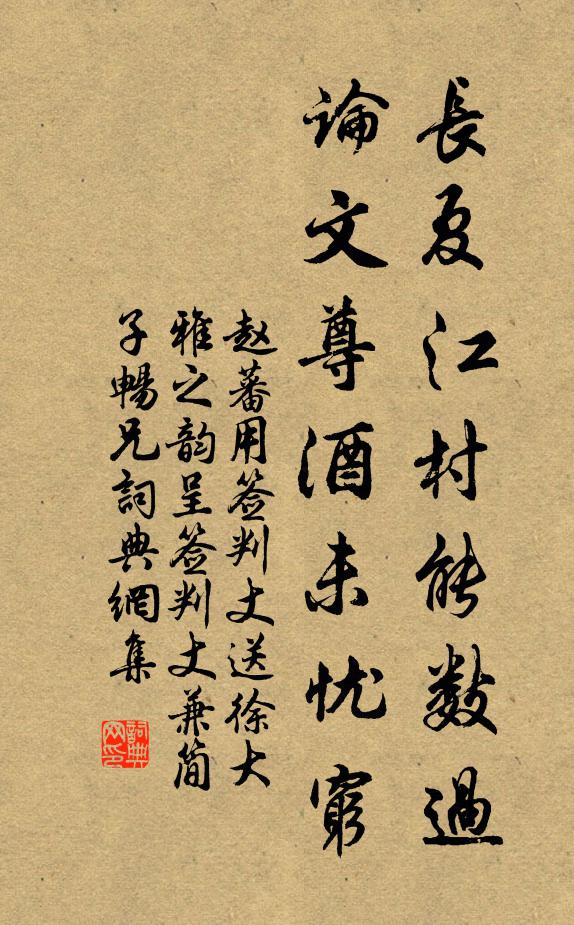 長夏江村能数過
論文尊酒未忧窮
赵蕃用签判丈送徐大
雅之韵呈签判丈兼简
子暢兄詞典網集
詞典
网印